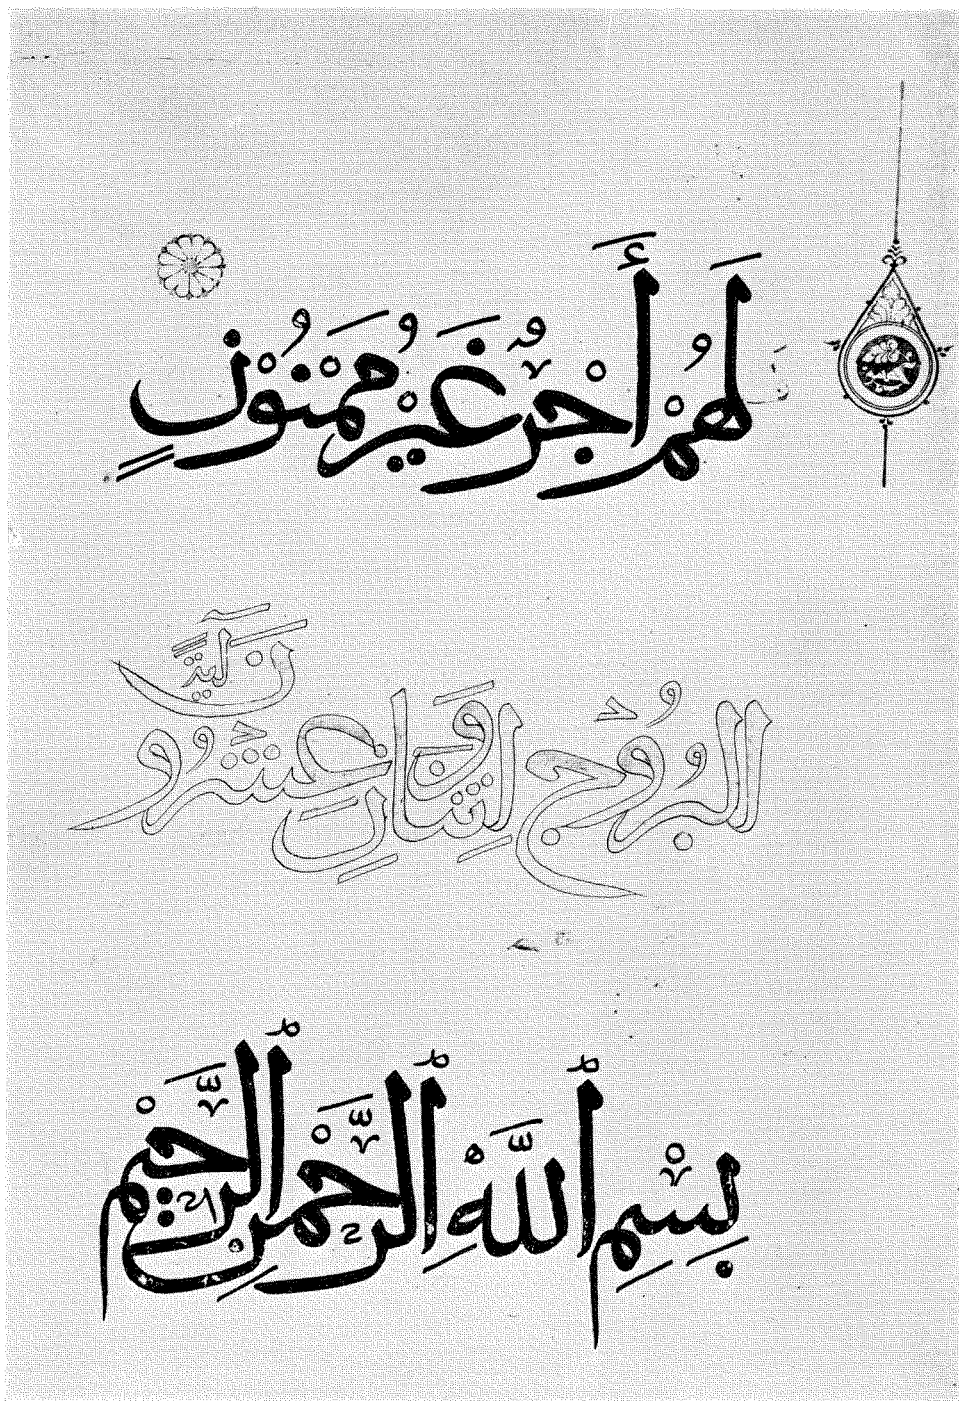 لَهُمْ أَجْرٌ غَيْرُ مَمْنُونٍ
الْبُرُوجُ اثْنَتَانِ وَعِشْرُونَ آيَةً
بِسْمِ ٱللَّهِ ٱلرَّحْمٰنِ ٱلرَّحِيمِ